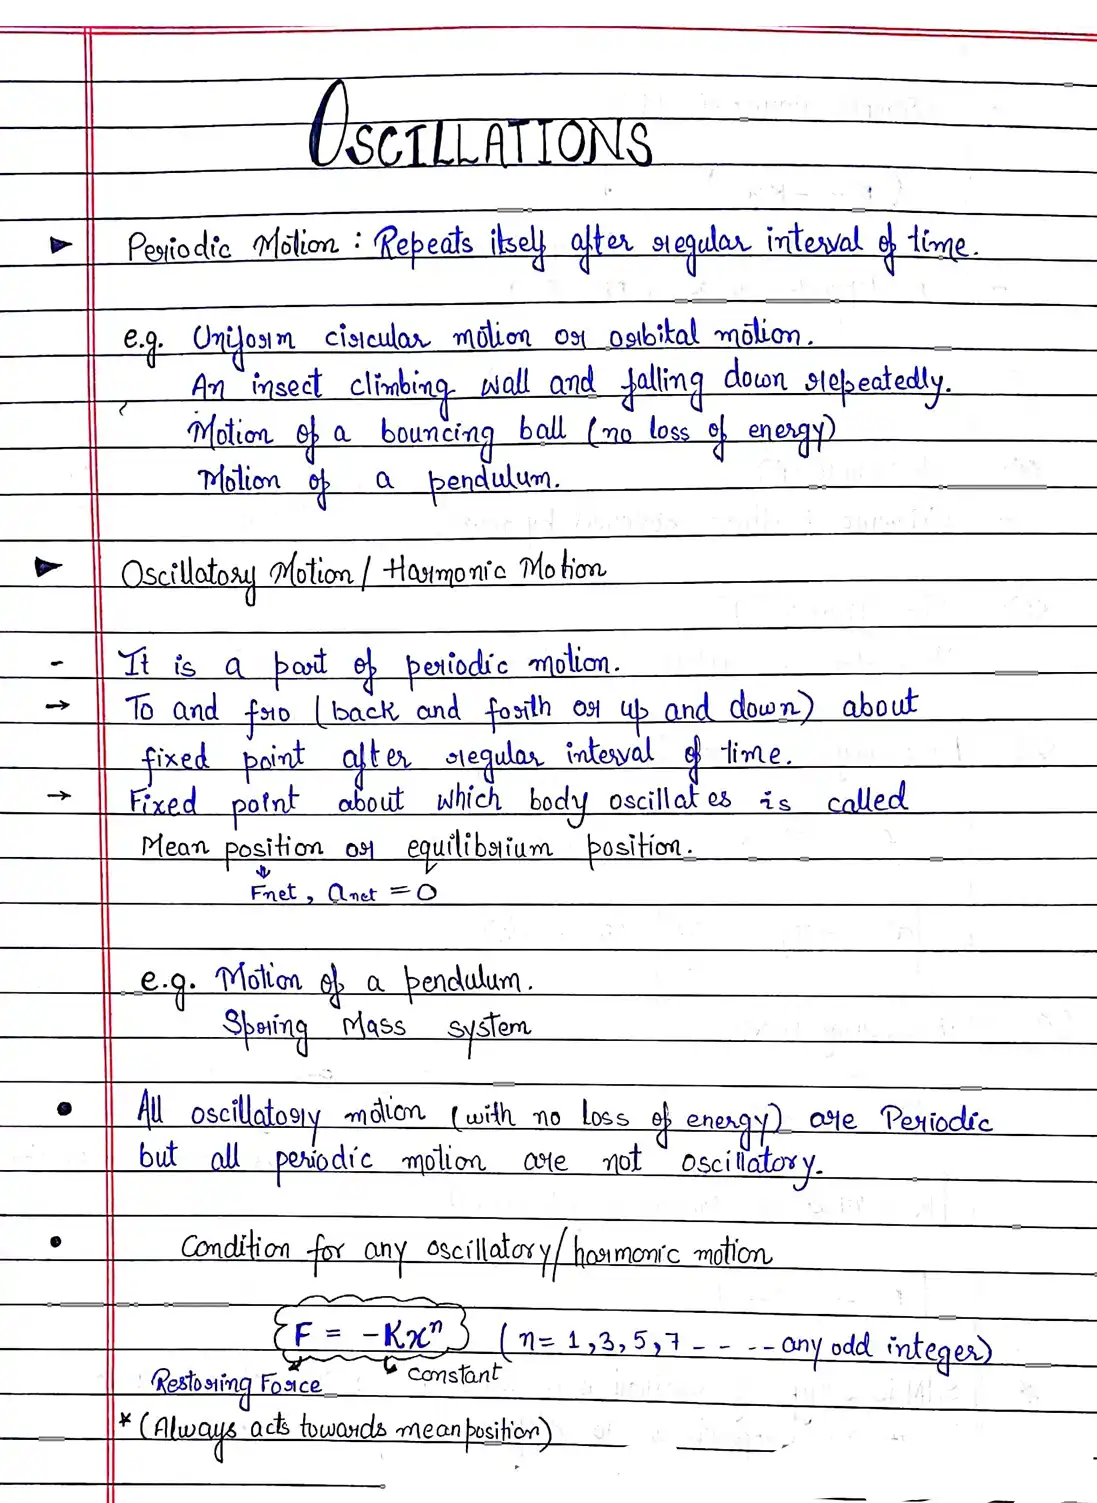 OSCILLATIONS
Periodic Motion : Repeats itself after regular interval of time.
e.g. Uniform circular motion or orbital motion.
An insect climbing wall and falling down repeatedly.
Motion of a bouncing ball (no loss of energy)
Motion of a pendulum.
Oscillatory Motion / Harmonic Motion
- It is a part of periodic motion.
→ To and fro (back and forth or up and down) about
fixed point after regular interval of time.
→ Fixed point about which body oscillates is called
Mean position or equilibrium position.
Fnet, anet = 0
e.g. Motion of a pendulum.
Spring Mass system
• All oscillatory motion (with no loss of energy) are Periodic
but all periodic motion are not oscillatory.
• Condition for any oscillatory/harmonic motion
F = -Kxⁿ (n= 1,3,5,7 - - - - any odd integer)
Restoring Force constant
* (Always acts towards mean position)